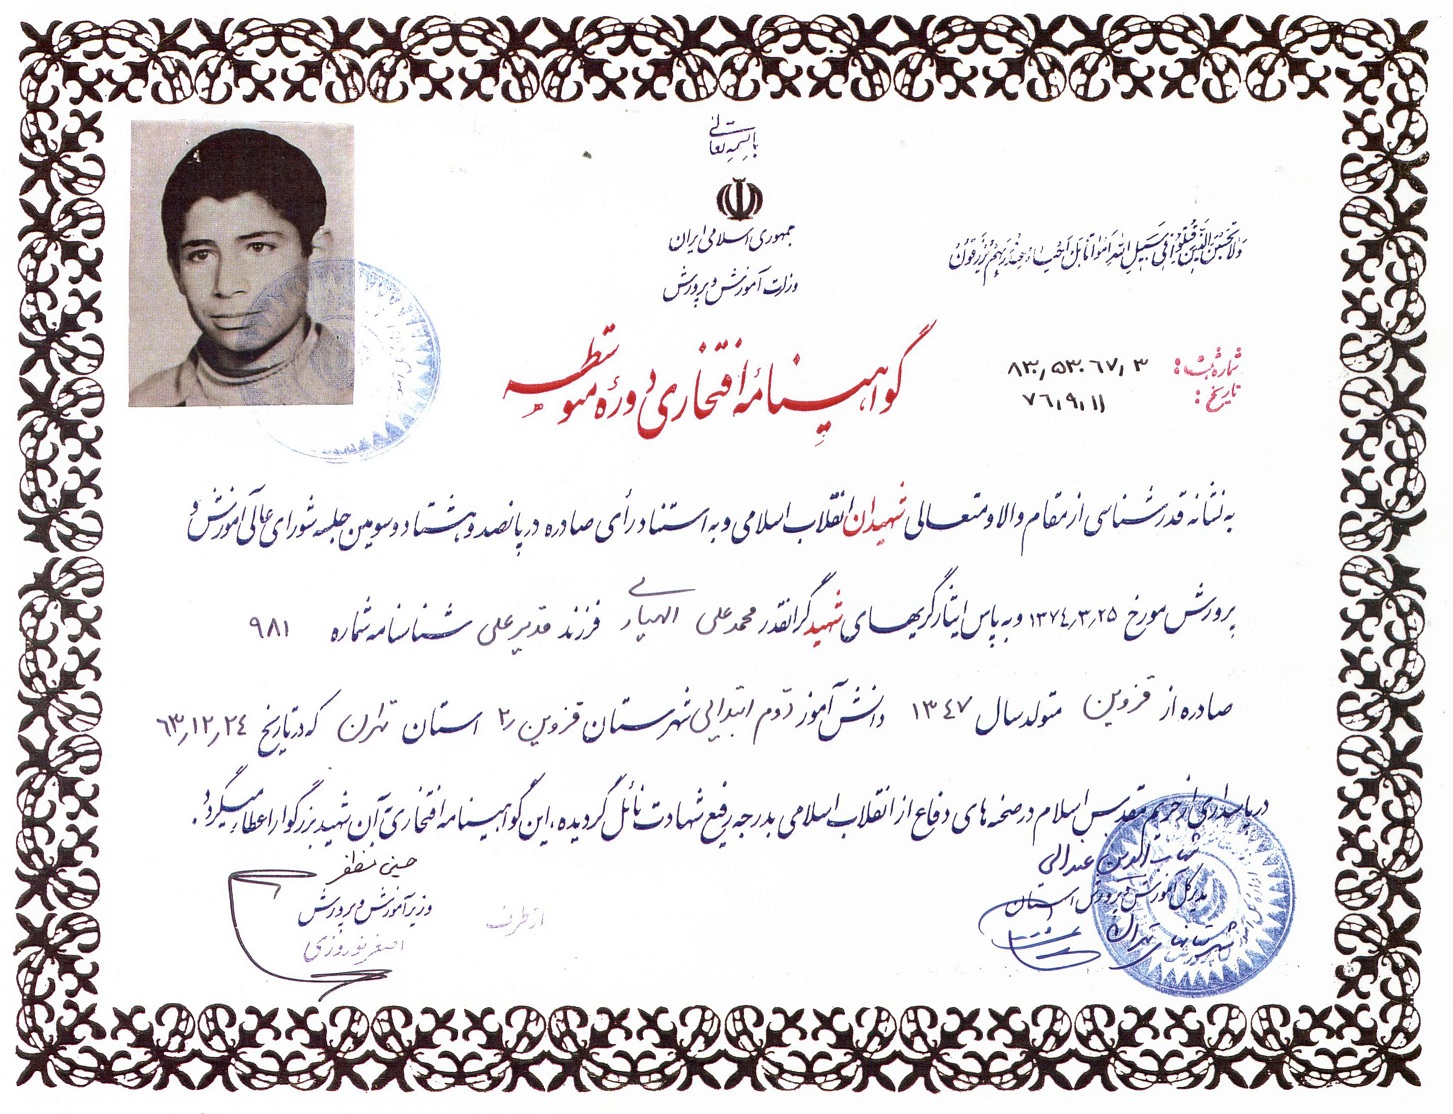 باسمه تعالی
جمهوری اسلامی ایران
وزارت آموزش و پرورش
ولا تحسبن الذین قتلوا فی سبیل الله امواتا بل احیاء عند ربهم یرزقون
گواهینامهٔ افتخاری دورهٔ متوسطه
شماره ثبت : ۸۳۰٫۵۳۰۶۷٫۳
تاریخ : ۷۶٫۹٫۱۱
به نشانه قدرشناسی از مقام والا و متعالی شهیدان انقلاب اسلامی و به استناد رأی صادره در پانصد و هشتاد و سومین جلسه شورای عالی آموزش و
پرورش مورخ ۱۳۷٤٫۳٫۲۵ و به پاس ایثارگریهای شهید گرانقدر محمدعلی الهیاری فرزند قدیرعلی شناسنامه شماره ۹۸۱
صادره از قزوین متولد سال ۱۳٤۷ دانش آموز دوم ابتدایی شهرستان قزوین ۲ استان تهران که در تاریخ ۶۳٫۱۲٫۲٤
در پاسداری از حریم مقدس اسلام در صحنه های دفاع از انقلاب اسلامی بدرجه رفیع شهادت نائل گردیده، این گواهینامه افتخاری به آن شهید بزرگوار اعطاء میگردد.
حسین مظفر
وزیر آموزش و پرورش
از طرف
اصغر نوروزی
شهاب الدین عدالی
مدیرکل آموزش و پرورش استان
شهرستانهای تهران